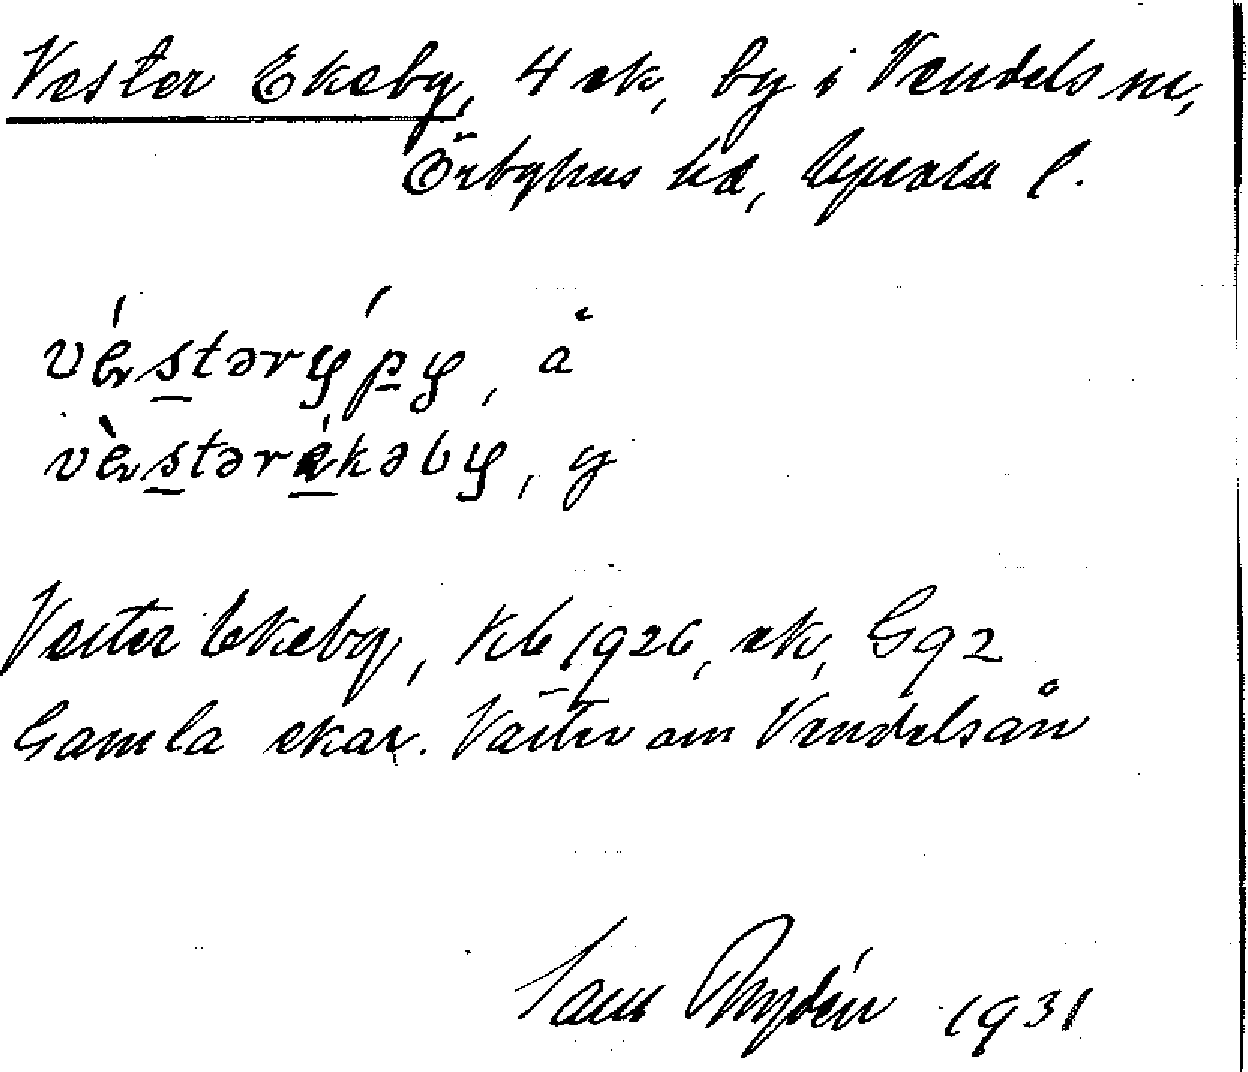 Vester Ekeby, 4 ek, by i Vendels sn,
Örbyhus hd, Upsala l.
véstəryṕy, å
vèstərékəby, y
Vester Ekeby, Kb 1926, ek, Gq2
Gamla ekar. Väster om Vendelsån
Sam Rydén 1931